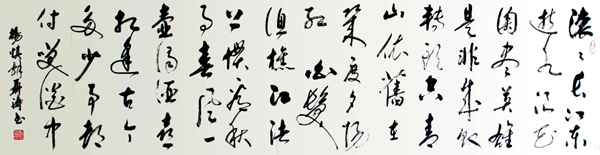 滚滚长江东
逝水浪花
淘尽英雄
是非成败
转头空青
山依舊在
几度夕阳
红白髮
渔樵江渚
上惯看秋
月春风一
壶浊酒喜
相逢古今
多少事都
付笑谈中
杨慎词